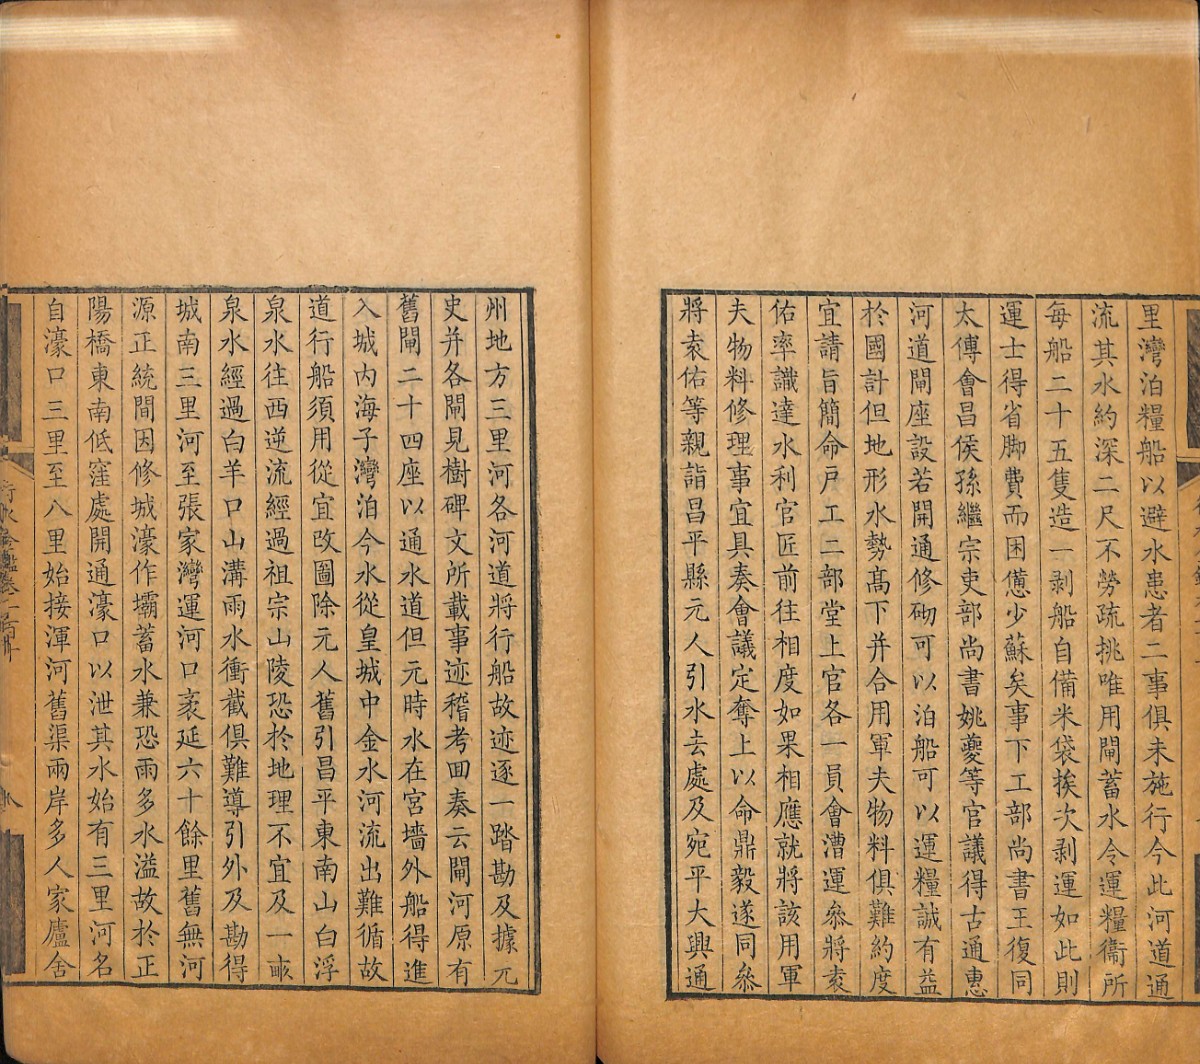 里灣泊糧船以避水患者二事俱未施行今此河道通
流其水約深二尺不勞疏挑唯用閘蓄水令運糧衞所
每船二十五隻造一剥船自備米袋挨次剥運如此則
運士得省脚費而困憊少蘇矣事下工部尚書王復同
太傅會昌侯孫繼宗吏部尚書姚夔等官議得古通惠
河道閘座設若開通修砌可以泊船可以運糧誠有益
於國計但地形水勢髙下并合用軍夫物料俱難約度
宜請旨簡命戸工二部堂上官各一員會漕運叅將袁
佑率識達水利官匠前往相度如果相應就將該用軍
夫物料修理事宜具奏會議定奪上以命鼎毅遂同叅
將袁佑等親詣昌平縣元人引水去處及宛平大興通
州地方三里河各河道將行船故迹逐一踏勘及據元
史并各閘見樹碑文所載事迹稽考囬奏云閘河原有
舊閘二十四座以通水道但元時水在宮墻外船得進
入城内海子灣泊今水從皇城中金水河流出難循故
道行船須用從宜改圖除元人舊引昌平東南山白浮
泉水往西逆流經過祖宗山陵恐於地理不宜及一畝
泉水經過白羊口山溝雨水衝截俱難導引外及勘得
城南三里河至張家灣運河口袤延六十餘里舊無河
源正統間因修城濠作壩蓄水兼恐雨多水溢故於正
陽橋東南低窪處開通濠口以泄其水始有三里河名
自濠口三里至八里始接渾河舊渠兩岸多人家廬舍